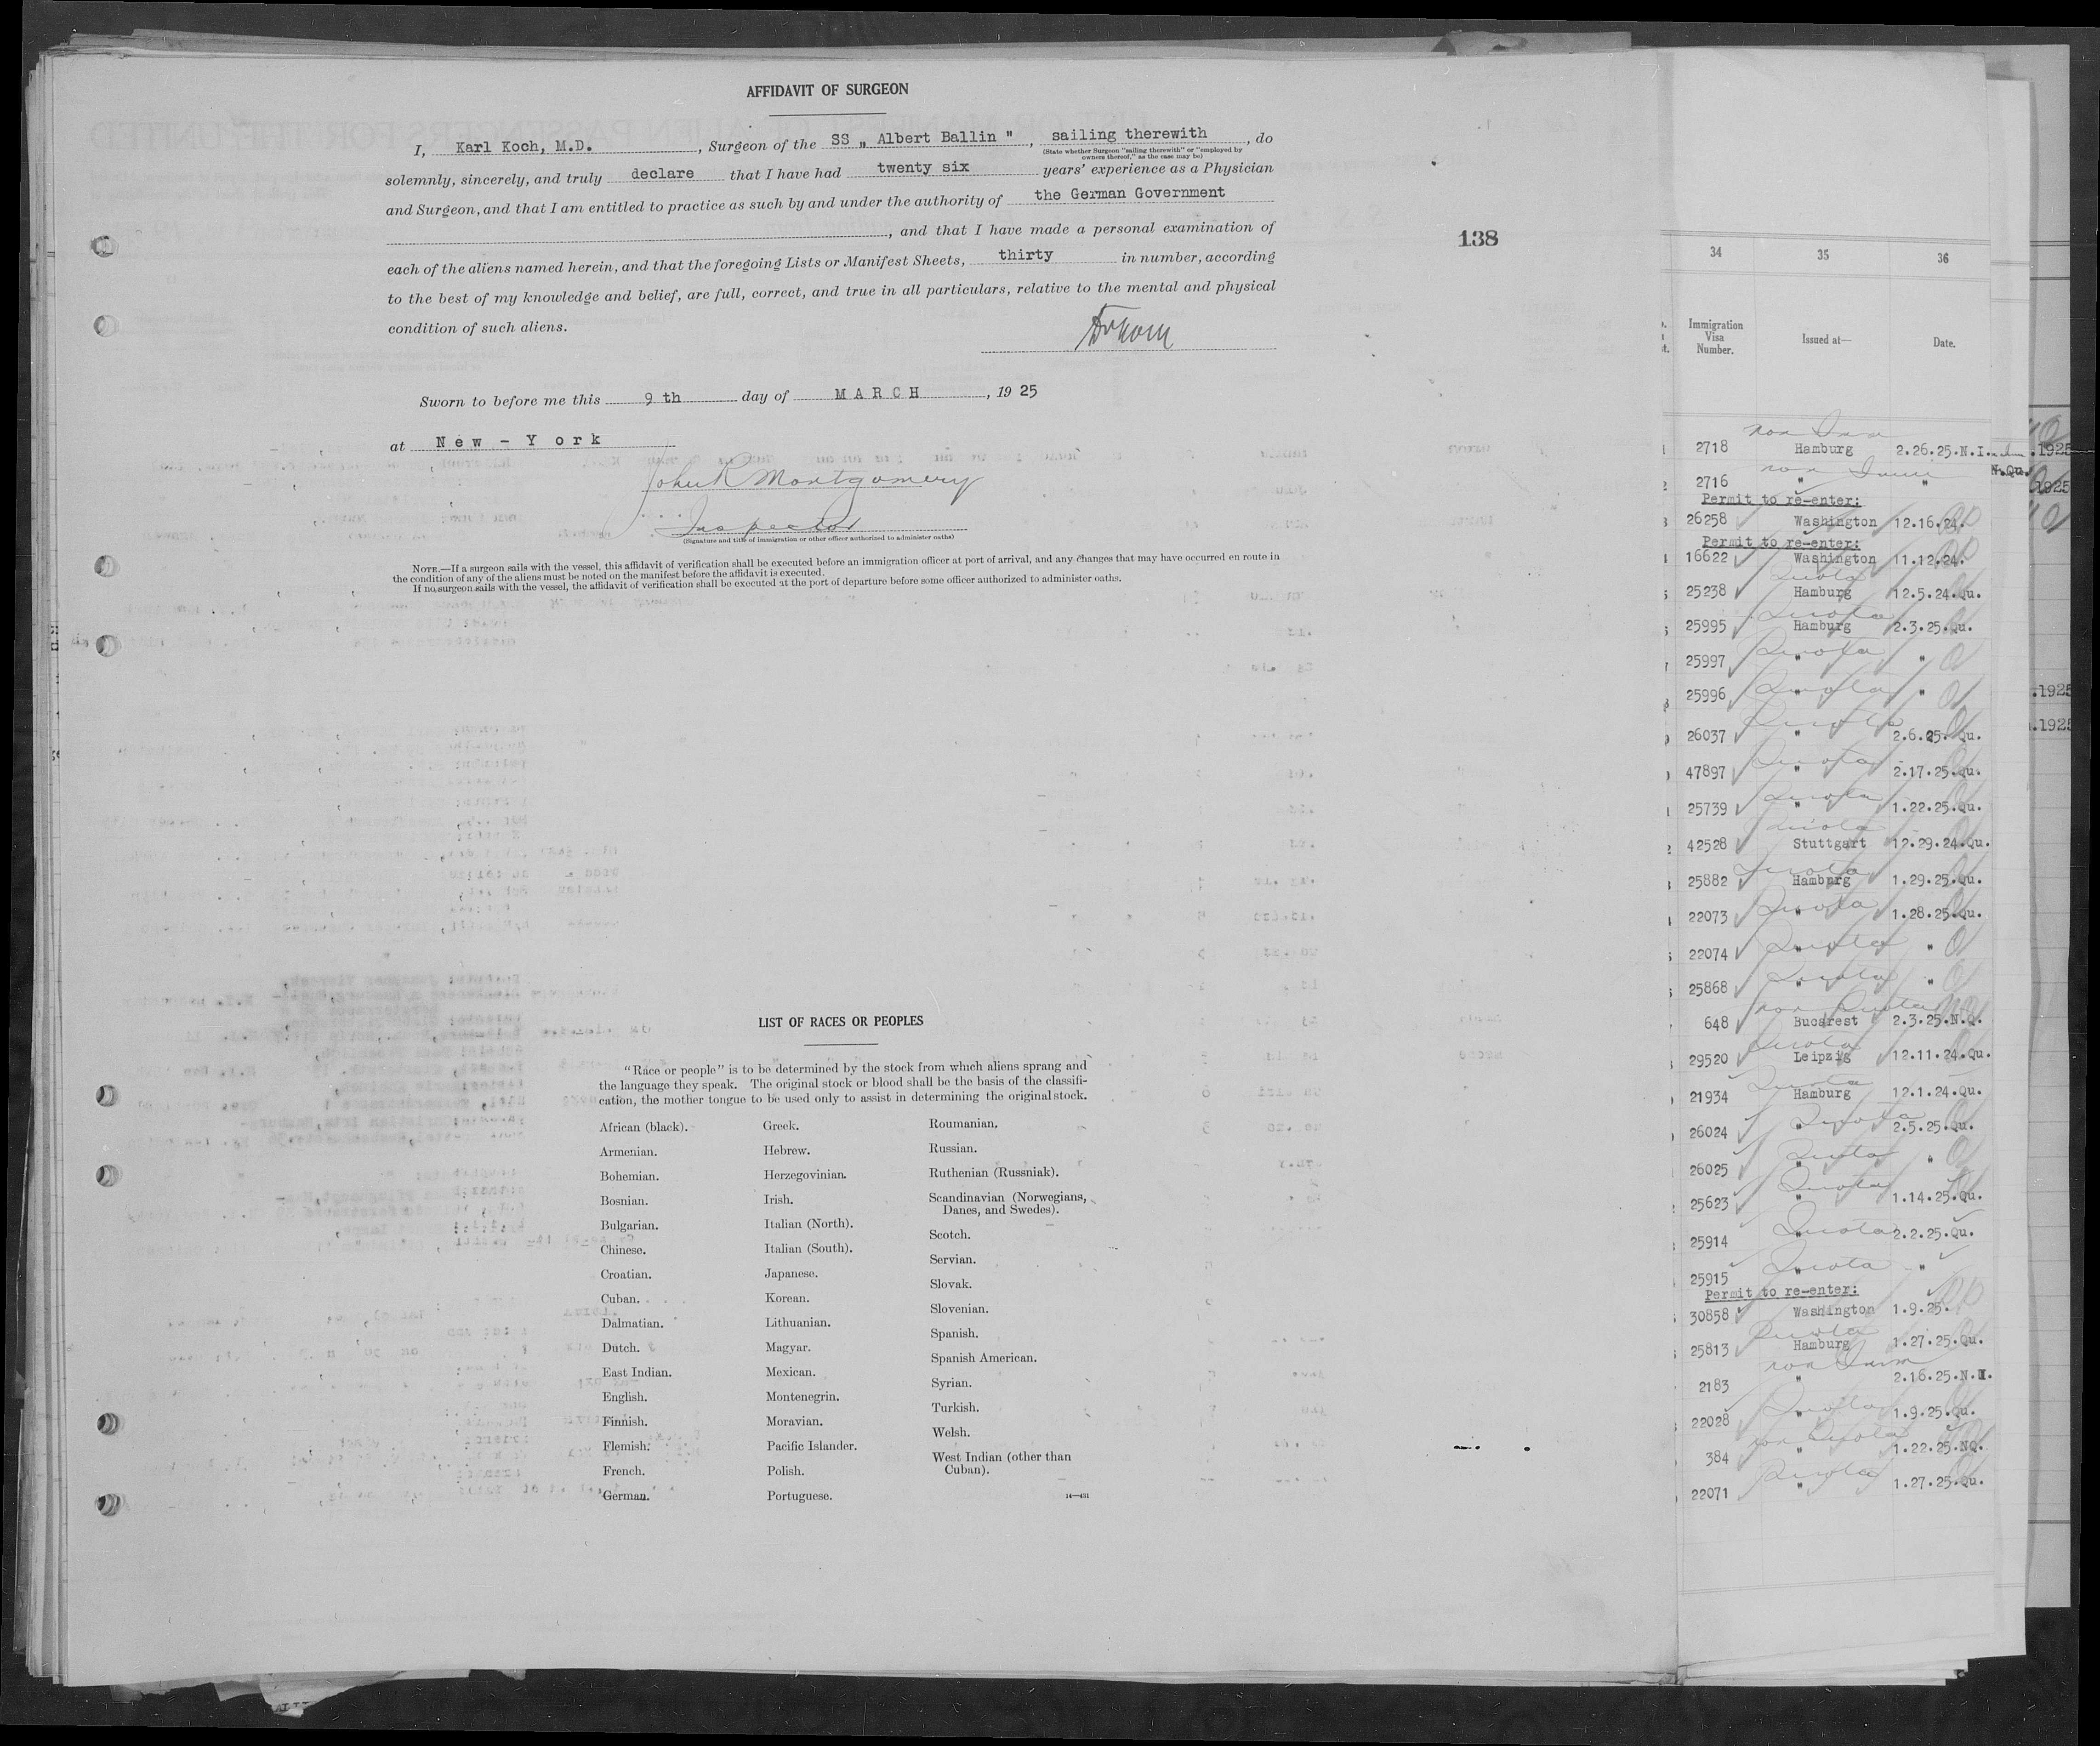 AFFIDAVIT OF SURGEON
I, Karl Koch, M.D., Surgeon of the SS „ Albert Ballin ", sailing therewith, do
(State whether Surgeon "sailing therewith" or "employed by
owners thereof," as the case may be)
solemnly, sincerely, and truly declare that I have had twenty six years' experience as a Physician
and Surgeon, and that I am entitled to practice as such by and under the authority of the German Government
, and that I have made a personal examination of
138
each of the aliens named herein, and that the foregoing Lists or Manifest Sheets, thirty in number, according
to the best of my knowledge and belief, are full, correct, and true in all particulars, relative to the mental and physical
condition of such aliens.
Sworn to before me this 9 th day of MARCH, 19 25
at New - York
John R Montgomery
Inspector
(Signature and title of immigration or other officer authorized to administer oaths)
NOTE.—If a surgeon sails with the vessel, this affidavit of verification shall be executed before an immigration officer at port of arrival, and any changes that may have occurred en route in
the condition of any of the aliens must be noted on the manifest before the affidavit is executed.
If no surgeon sails with the vessel, the affidavit of verification shall be executed at the port of departure before some officer authorized to administer oaths.
LIST OF RACES OR PEOPLES
"Race or people" is to be determined by the stock from which aliens sprang and
the language they speak. The original stock or blood shall be the basis of the classifi-
cation, the mother tongue to be used only to assist in determining the original stock.
African (black).
Armenian.
Bohemian.
Bosnian.
Bulgarian.
Chinese.
Croatian.
Cuban.
Dalmatian.
Dutch.
East Indian.
English.
Finnish.
Flemish.
French.
German.
Greek.
Hebrew.
Herzegovinian.
Irish.
Italian (North).
Italian (South).
Japanese.
Korean.
Lithuanian.
Magyar.
Mexican.
Montenegrin.
Moravian.
Pacific Islander.
Polish.
Portuguese.
Roumanian.
Russian.
Ruthenian (Russniak).
Scandinavian (Norwegians,
Danes, and Swedes).
Scotch.
Servian.
Slovak.
Slovenian.
Spanish.
Spanish American.
Syrian.
Turkish.
Welsh.
West Indian (other than
Cuban).
14—431
34 35 36
Immigration
Visa
Number. Issued at— Date.
2718 Hamburg 2.26.25.N.I. .1925
N.Qu.
2716 " " 1925
Permit to re-enter:
26258 Washington 12.16.24.
Permit to re-enter:
16622 Washington 11.12.24.
Quota
25238 Hamburg 12.5.24.Qu.
Quota
25995 Hamburg 2.3.25.Qu.
25997 Quota " "
25996 Quota " " .1925
26037 Quota " 2.6.25.Qu. .1925
47897 Quota " 2.17.25.Qu.
25739 Quota " 1.22.25.Qu.
Quota
42528 Stuttgart 12.29.24.Qu.
Quota
25882 Hamburg 1.29.25.Qu.
22073 Quota " 1.28.25.Qu.
22074 Quota " "
25868 Quota " "
non Quota
648 Bucarest 2.3.25.N.Q.
Quota
29520 Leipzig 12.11.24.Qu.
Quota
21934 Hamburg 12.1.24.Qu.
26024 Quota " 2.5.25.Qu.
26025 Quota " "
25623 Quota " 1.14.25.Qu.
25914 Quota " 2.2.25.Qu.
25915 Quota " "
Permit to re-enter:
30858 Washington 1.9.25.
Quota
25813 Hamburg 1.27.25.Qu.
2183 " 2.16.25.N.I.
22028 Quota 1.9.25.Qu.
non Quota
384 " 1.22.25.NQ.
22071 Quota " 1.27.25.Qu.